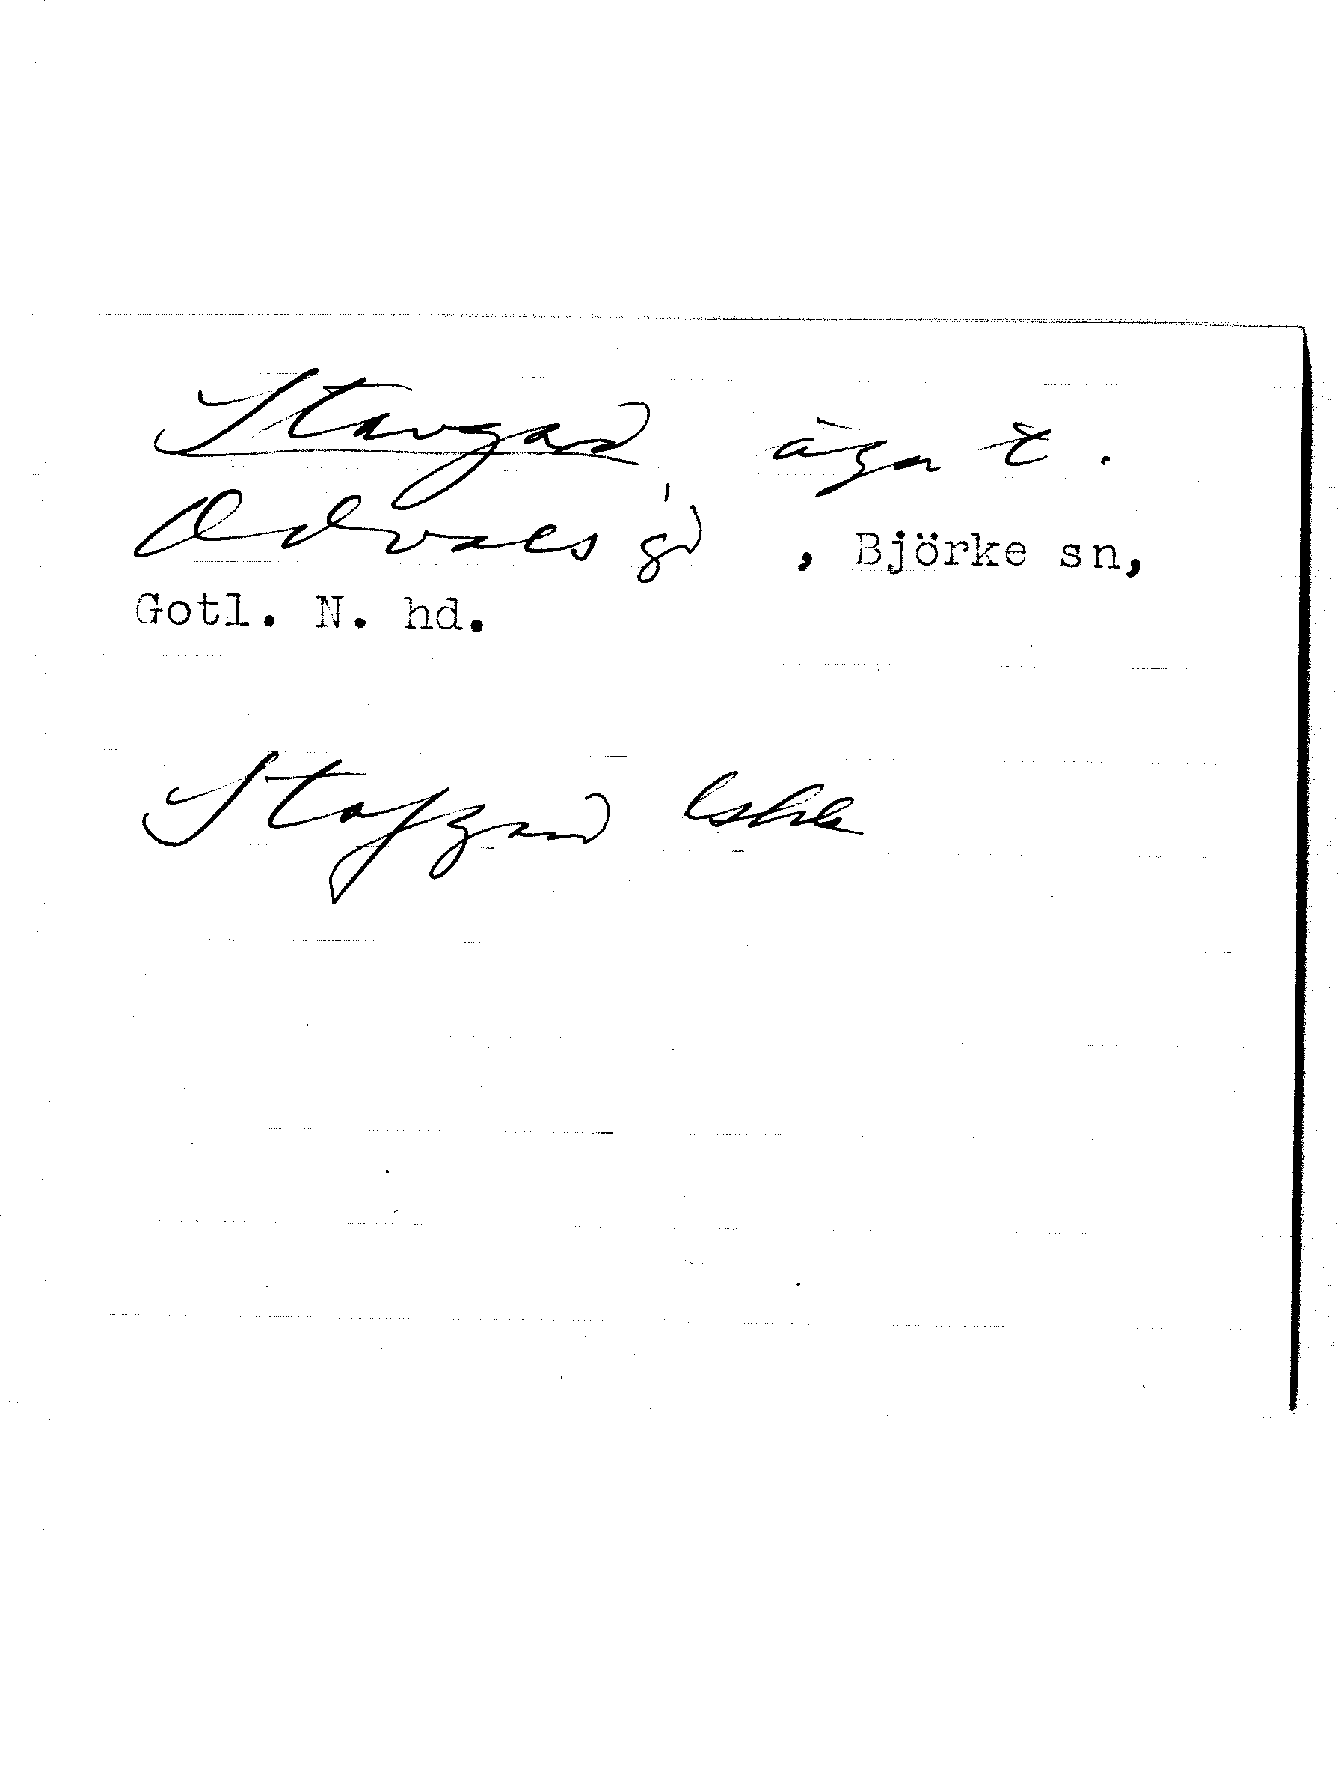 Stavgard, ägor t.
Odvalls gd, Björke sn,
Gotl. N. hd.
Stafgard lshk